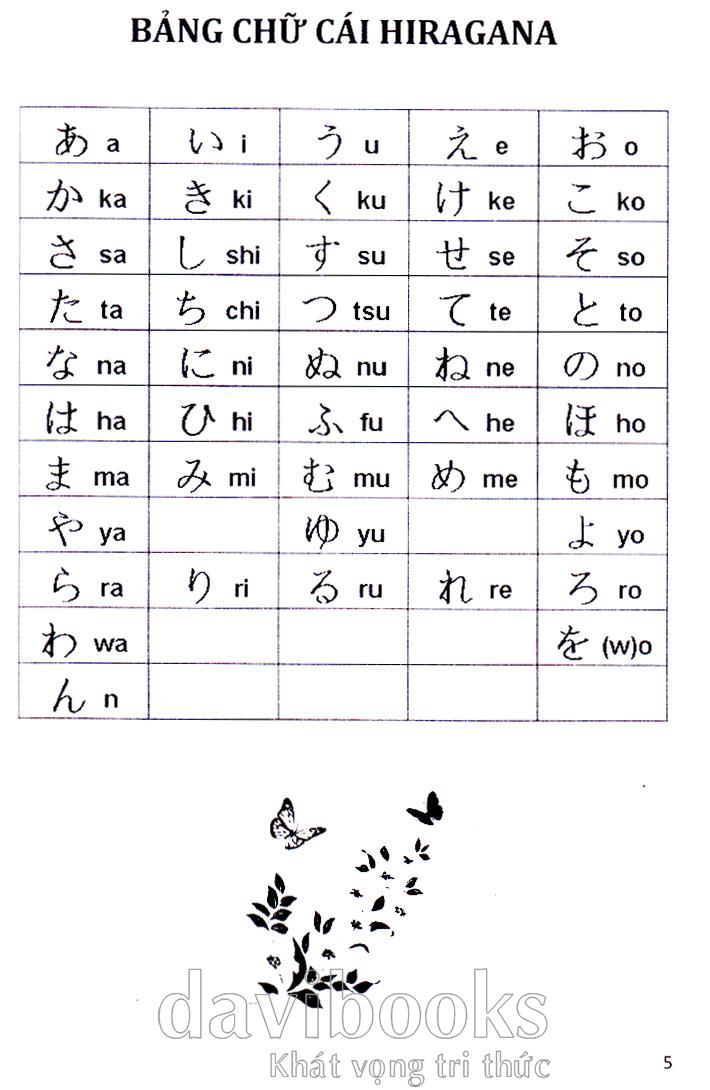 BẢNG CHỮ CÁI HIRAGANA
あ a い i う u え e お o
か ka き ki く ku け ke こ ko
さ sa し shi す su せ se そ so
た ta ち chi つ tsu て te と to
な na に ni ぬ nu ね ne の no
は ha ひ hi ふ fu へ he ほ ho
ま ma み mi む mu め me も mo
や ya ゆ yu よ yo
ら ra り ri る ru れ re ろ ro
わ wa を (w)o
ん n
davibooks
Khát vọng tri thức
5